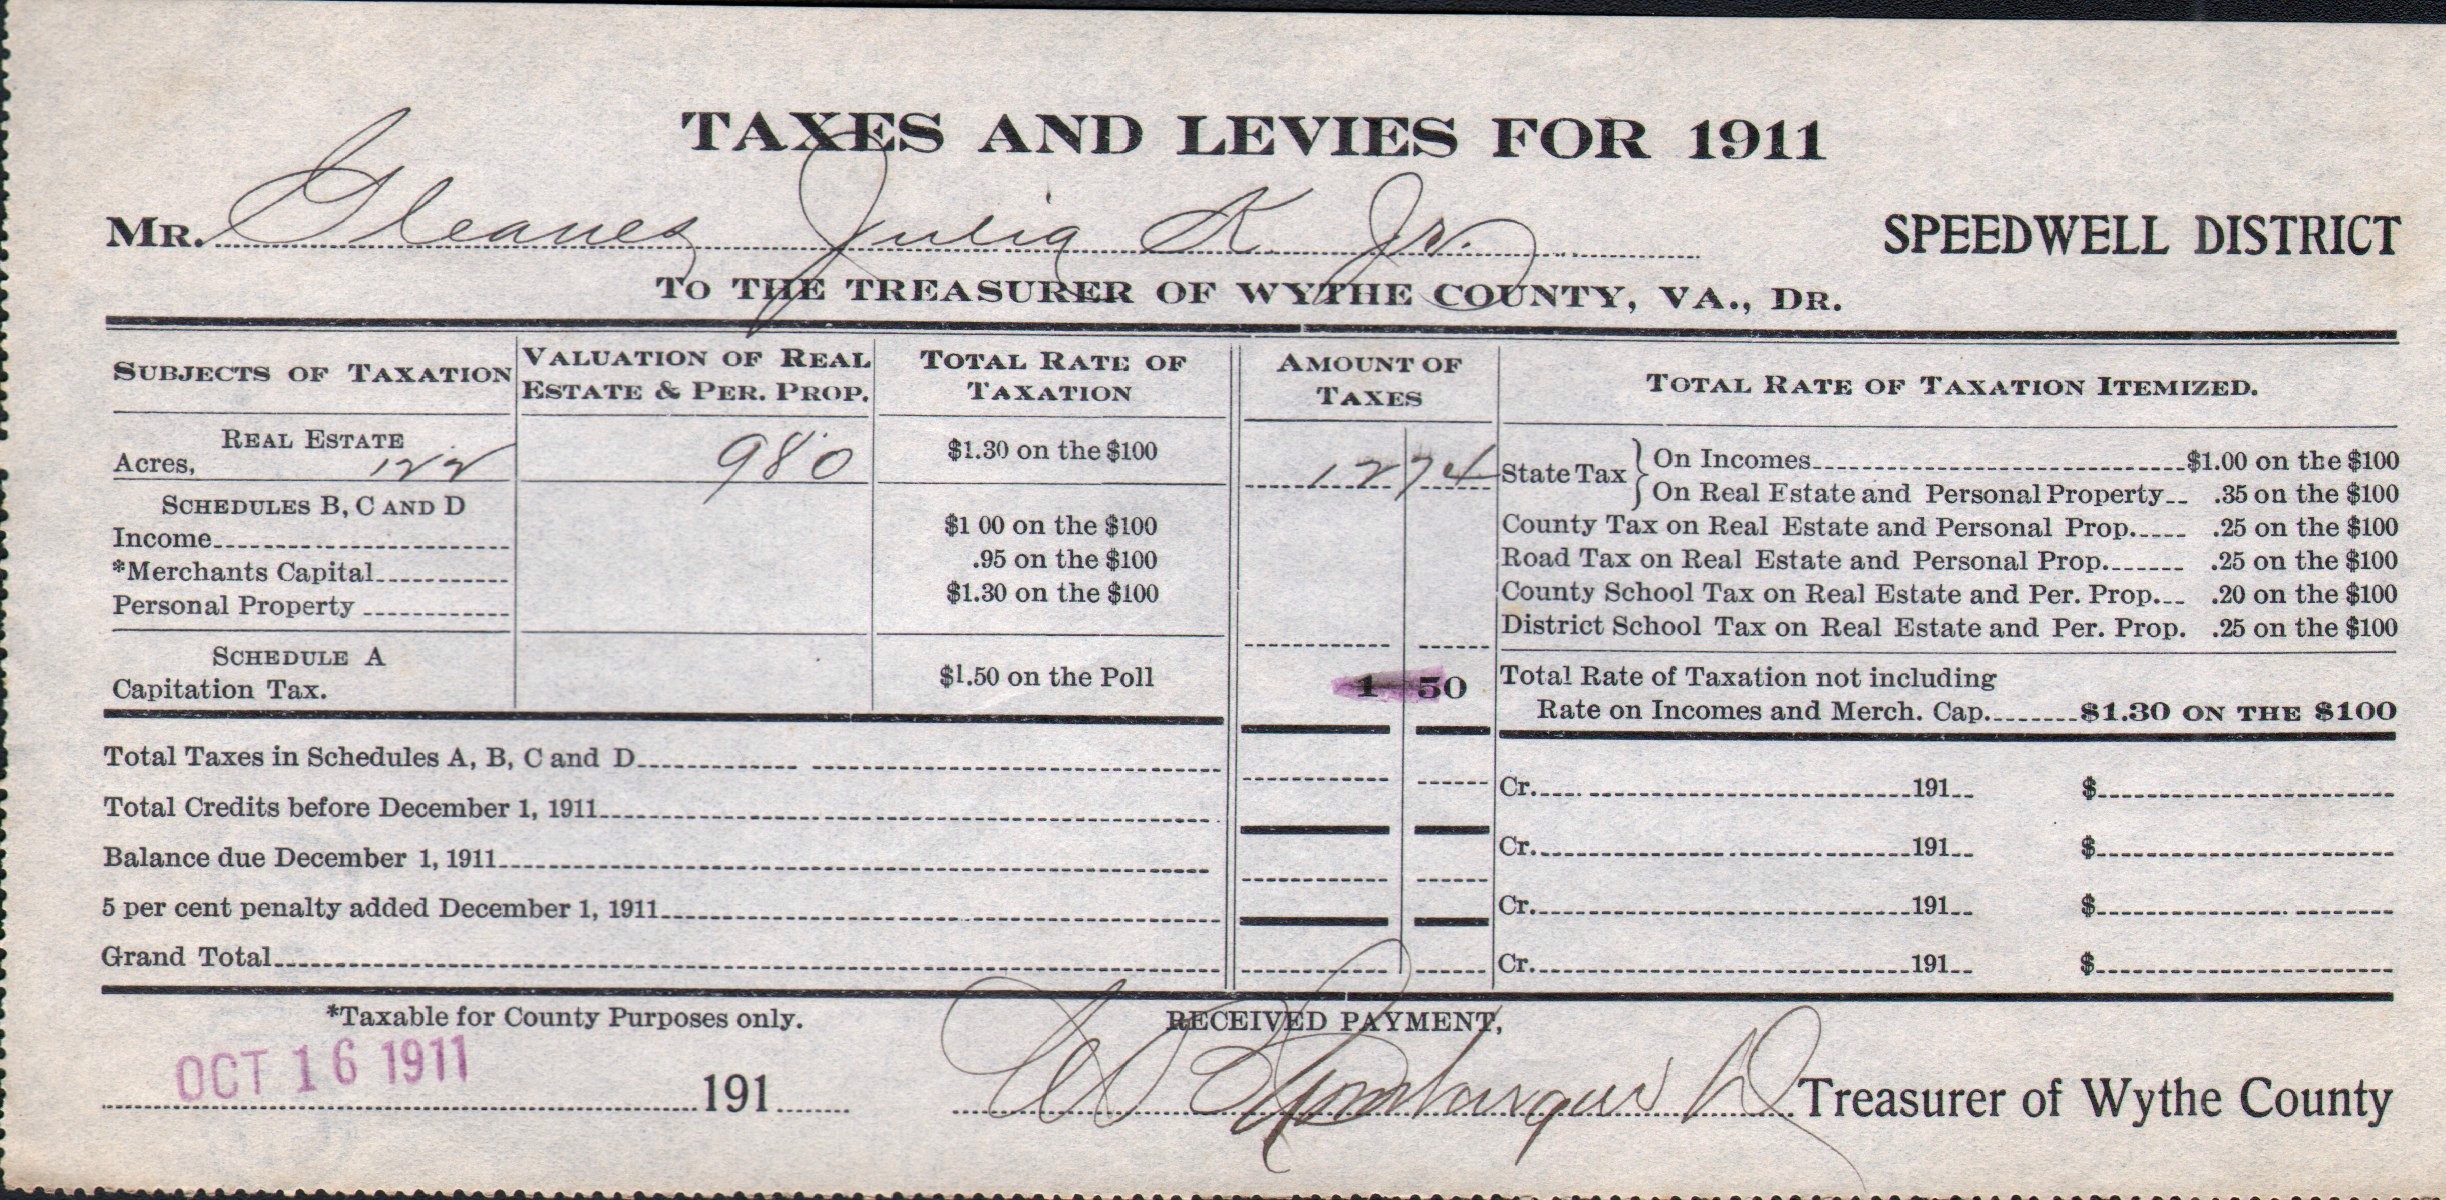 TAXES AND LEVIES FOR 1911
MR. Gleaves Julia K Jr. SPEEDWELL DISTRICT
TO THE TREASURER OF WYTHE COUNTY, VA., DR.
SUBJECTS OF TAXATION
VALUATION OF REAL
ESTATE & PER. PROP.
TOTAL RATE OF
TAXATION
AMOUNT OF
TAXES
TOTAL RATE OF TAXATION ITEMIZED.
REAL ESTATE
Acres, 122
980
$1.30 on the $100
12 74
SCHEDULES B, C AND D
Income
*Merchants Capital
Personal Property
$1 00 on the $100
.95 on the $100
$1.30 on the $100
SCHEDULE A
Capitation Tax.
$1.50 on the Poll
1 50
State Tax
On Incomes $1.00 on the $100
On Real Estate and Personal Property .35 on the $100
County Tax on Real Estate and Personal Prop. .25 on the $100
Road Tax on Real Estate and Personal Prop. .25 on the $100
County School Tax on Real Estate and Per. Prop. .20 on the $100
District School Tax on Real Estate and Per. Prop. .25 on the $100
Total Rate of Taxation not including
Rate on Incomes and Merch. Cap. $1.30 ON THE $100
Total Taxes in Schedules A, B, C and D
Total Credits before December 1, 1911
Balance due December 1, 1911
5 per cent penalty added December 1, 1911
Grand Total
Cr. 191 $
Cr. 191 $
Cr. 191 $
Cr. 191 $
*Taxable for County Purposes only.
RECEIVED PAYMENT,
OCT 16 1911
191
Treasurer of Wythe County